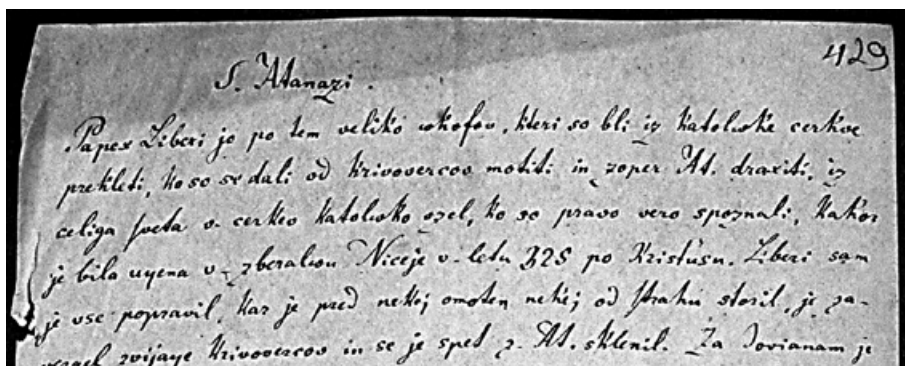 429
S. Atanazi.
Papex Liberi je po tem veliko шkofov, kteri so bli iz Katolшke cerkve
prekleti, ko so se dali od krivovercov motiti in zoper At. draxiti, iz
celiga sveta v cerkev Katolшko vzel, ko so pravo vero spoznali, kakor
je bila uчena v zberalшu Niceje v letu 325 po Kristusu. Liberi sam
je vse popravil, kar je pred nekej omoten nekej od strahu storil, je za-
vergel zvijaчe krivovercov in se je spet z At. sklenil. Za Jovianam je